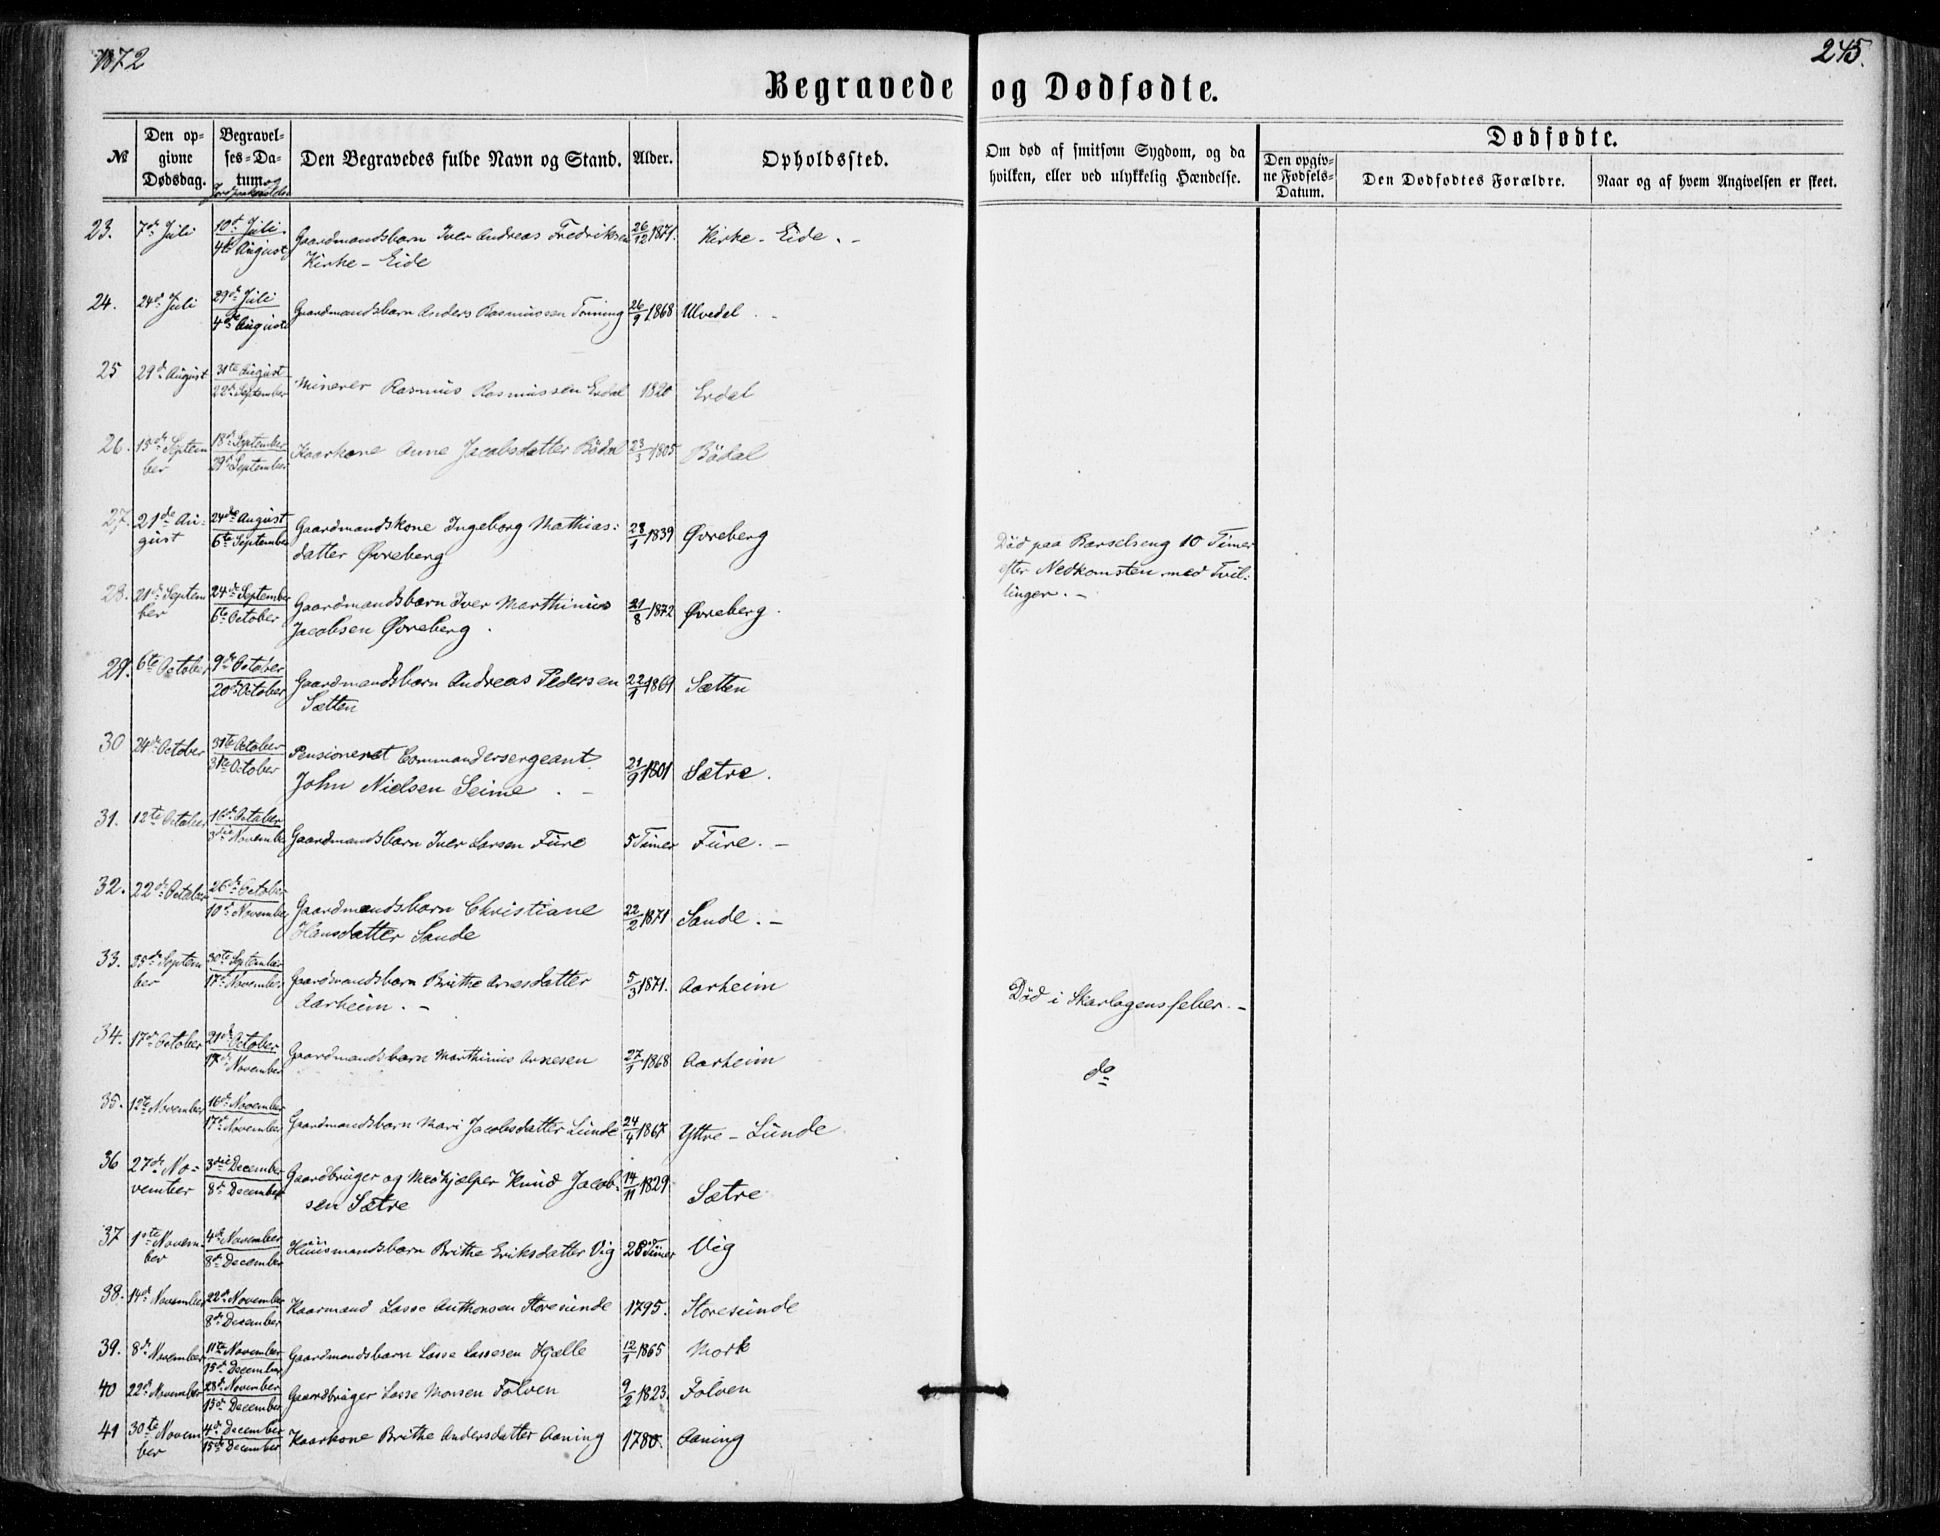 1872
245.
Begravede og Dødfødte.
№
Den opgivne Dødsdag.
Begravelses-Datum og
Den Begravedes fulde Navn og Stand.
Alder.
Opholdssted.
Om død af smitsom Sygdom, og da hvilken, eller ved ulykkelig Hændelse.
Dødfødte.
Den opgivne Fødsels-Datum.
Den Dødfødtes Forældre.
Naar og af hvem Angivelsen er skeet.
23. 7de Juli 10de Juli 4de August Gaardmandsbarn Iver Andreas Fredriksen Kirke-Eide 26/12 1871. Kirke-Eide.-
24. 24de Juli 29de Juli 4de August Gaardmandsbarn Anders Rasmussen Tonning 26/9 1868 Ulvedal
25 29de August 31te August 22de September Minerer Rasmus Rasmussen Erdal 1820 Erdal
26. 15de September 18de September 29de September Kaarkone Anne Jacobsdatter Bödal 23/3 1805 Bödal
27. 21de August 24de August 6te September Gaardmandskone Ingeborg Mathiasdatter Øvreberg 28/1 1839 Øvreberg Död paa Barselseng 10 Timer efter Nedkomsten med Tvillinger.-
28. 21de September 24de September 6te October Gaardmandsbarn Iver Marthinus Jacobsen Øvreberg. 21/8 1872 Øvreberg.
29. 6te October 9de October 20de October Gaardmandsbarn Andreas Pedersen Sætten 22/1 1869 Sætten
30 24de October 31te October 31te October Pensioneret Commandersergeant John Nielsen Seime.- 21/9 1801 Sætre.
31. 12te October 16de October 3die November Gaardmandsbarn Iver Larsen Fure 5 Timer Fure.-
32. 22de October 26de October 10de November Gaardmandsbarn Christiane Hansdatter Sande 22/2 1871 Sande.-
33. 25de September 30te September 17de November Gaardmandsbarn Brithe Arnesdatter Aarheim.- 5/3 1871. Aarheim Död i Skarlagensfeber.-
34. 17de October 21de October 17de November Gaardmandsbarn Marthinus Arnesen 27/1 1868 Aarheim do
35. 12te November 16de November 17de November Gaardmandsbarn Mari Jacobsdatter Lunde 24/4 1867 Yttre-Lunde
36 27de November 3die December 8de December Gaardbruger og Medhjælper Knud Jacobsen Sætre 14/11 1829 Sætre
37 1ste November 4de November 8de December Huusmandsbarn Brithe Eriksdatter Vig 26 Timer Vig
38. 14de November 22de November 8de December Kaarmand Lasse Anthonsen Storesunde 1795. Storesunde
39. 8de November 11te November 15de December Gaardmandsbarn Lasse Lassesen Hjelle 12/1 1865 Mork
40 22de November 28de November 15de December Gaardbruger Lasse Monsen Folven 9/2 1823. Folven
41 30te November 4de December 15de December Kaarkone Brithe Andersdatter Aaning 1780. Aaning